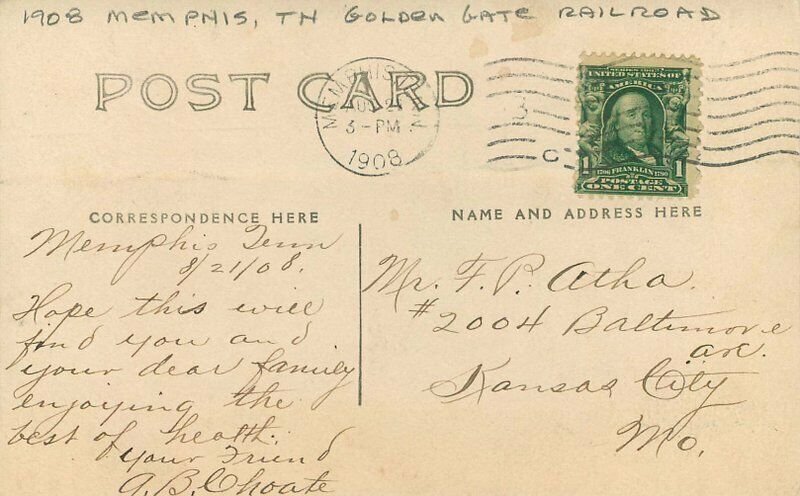 1908 MEMPHIS, TN GOLDEN GATE RAILROAD
POST CARD
MEMPHIS
3-PM
1908
3
C
SERIES 1902
UNITED STATES OF AMERICA
1 1
1706 FRANKLIN 1790
POSTAGE
ONE CENT
CORRESPONDENCE HERE
NAME AND ADDRESS HERE
Memphis Tenn
8/21/08.
Hope this will
find you and
your dear family
enjoying the
best of health.
Your Friend
A.B. Choate
Mr. F. P. Atha.
#2004 Baltimore
ave.
Kansas City
Mo.